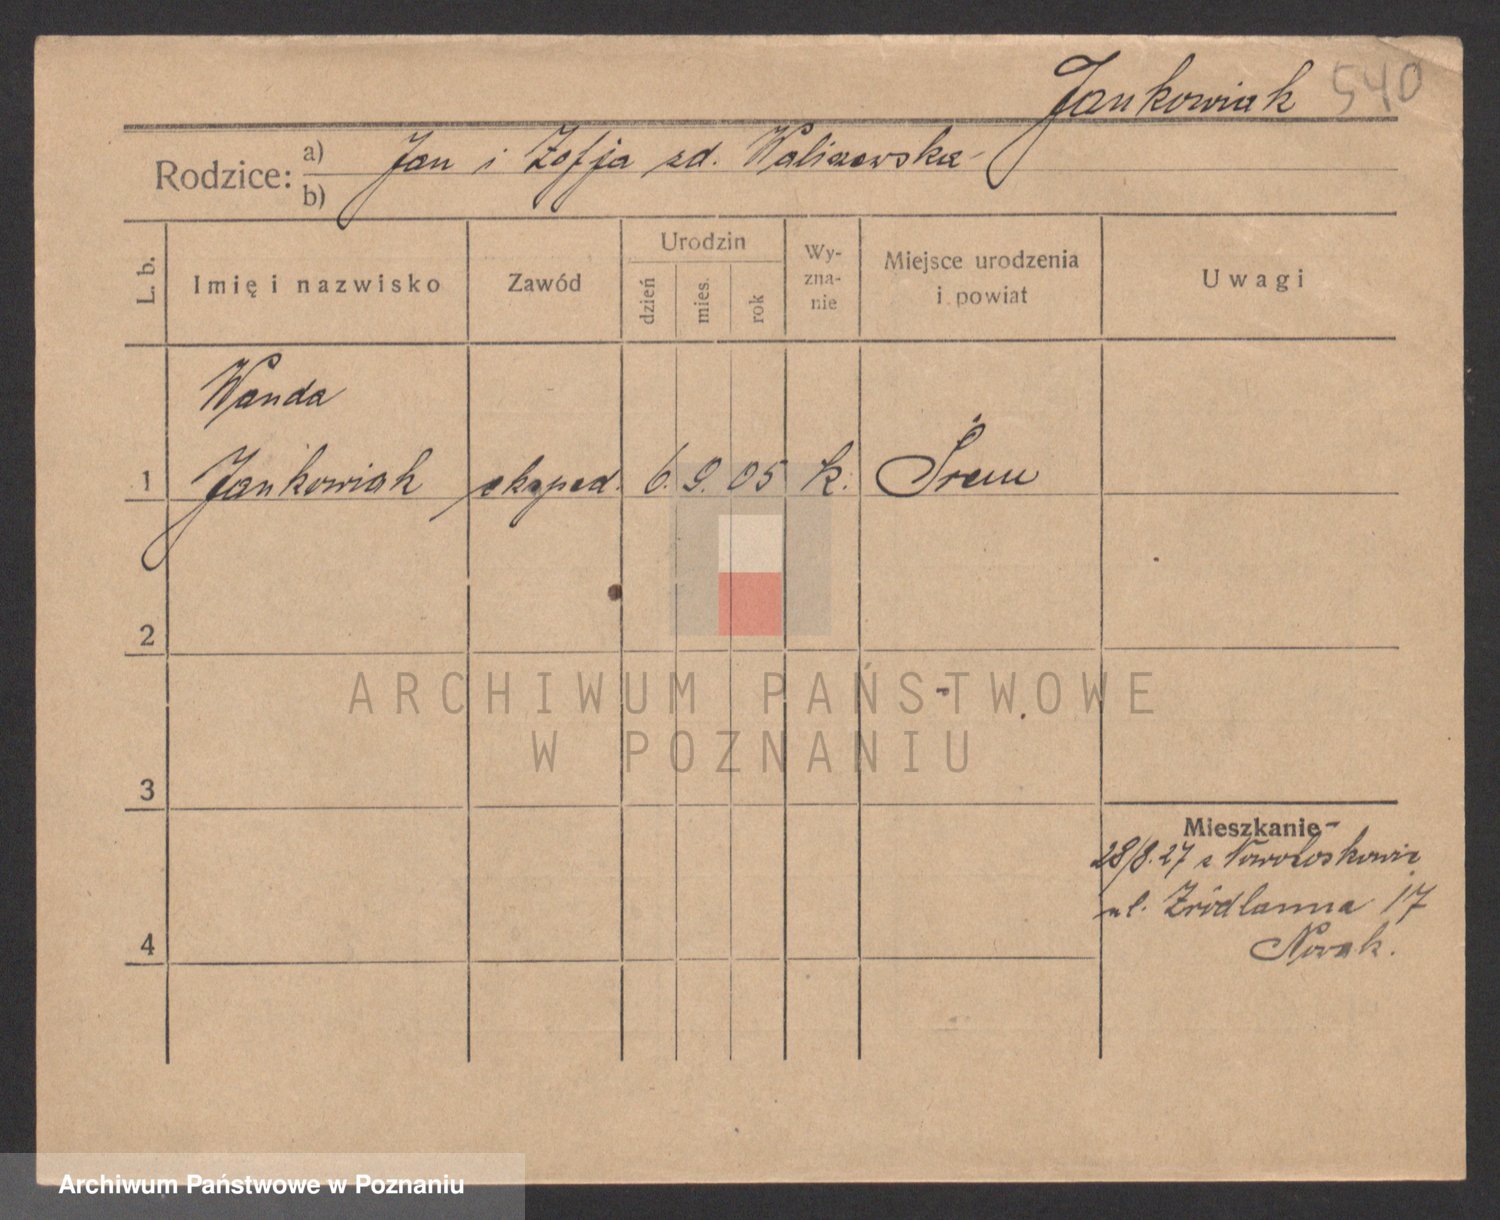 Jankowiak 540
Rodzice: a) Jan i Zofja zd. Waliszewska
b)
L. b.
Imię i nazwisko
Zawód
Urodzin
dzień
mies.
rok
Wy-
zna-
nie
Miejsce urodzenia
i powiat
Uwagi
Wanda
1 Jankowiak eksped. 6. 9. 05 k. Śrem
2
ARCHIWUM PAŃSTWOWE
W POZNANIU
3
Mieszkanie
28/8.27 z
ul. Źródlanna 17
4 Nowak.
Archiwum Państwowe w Poznaniu